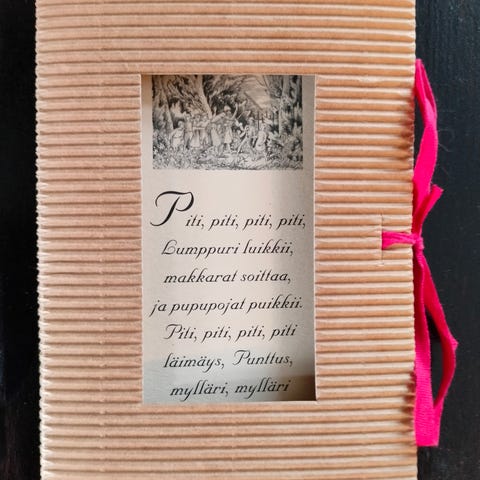 Piti, piti, piti, piti,
Lumppuri luikkii,
makkarat soittaa,
ja pupupojat puikkii.
Piti, piti, piti, piti
läimäys, Punttus,
mylläri, mylläri